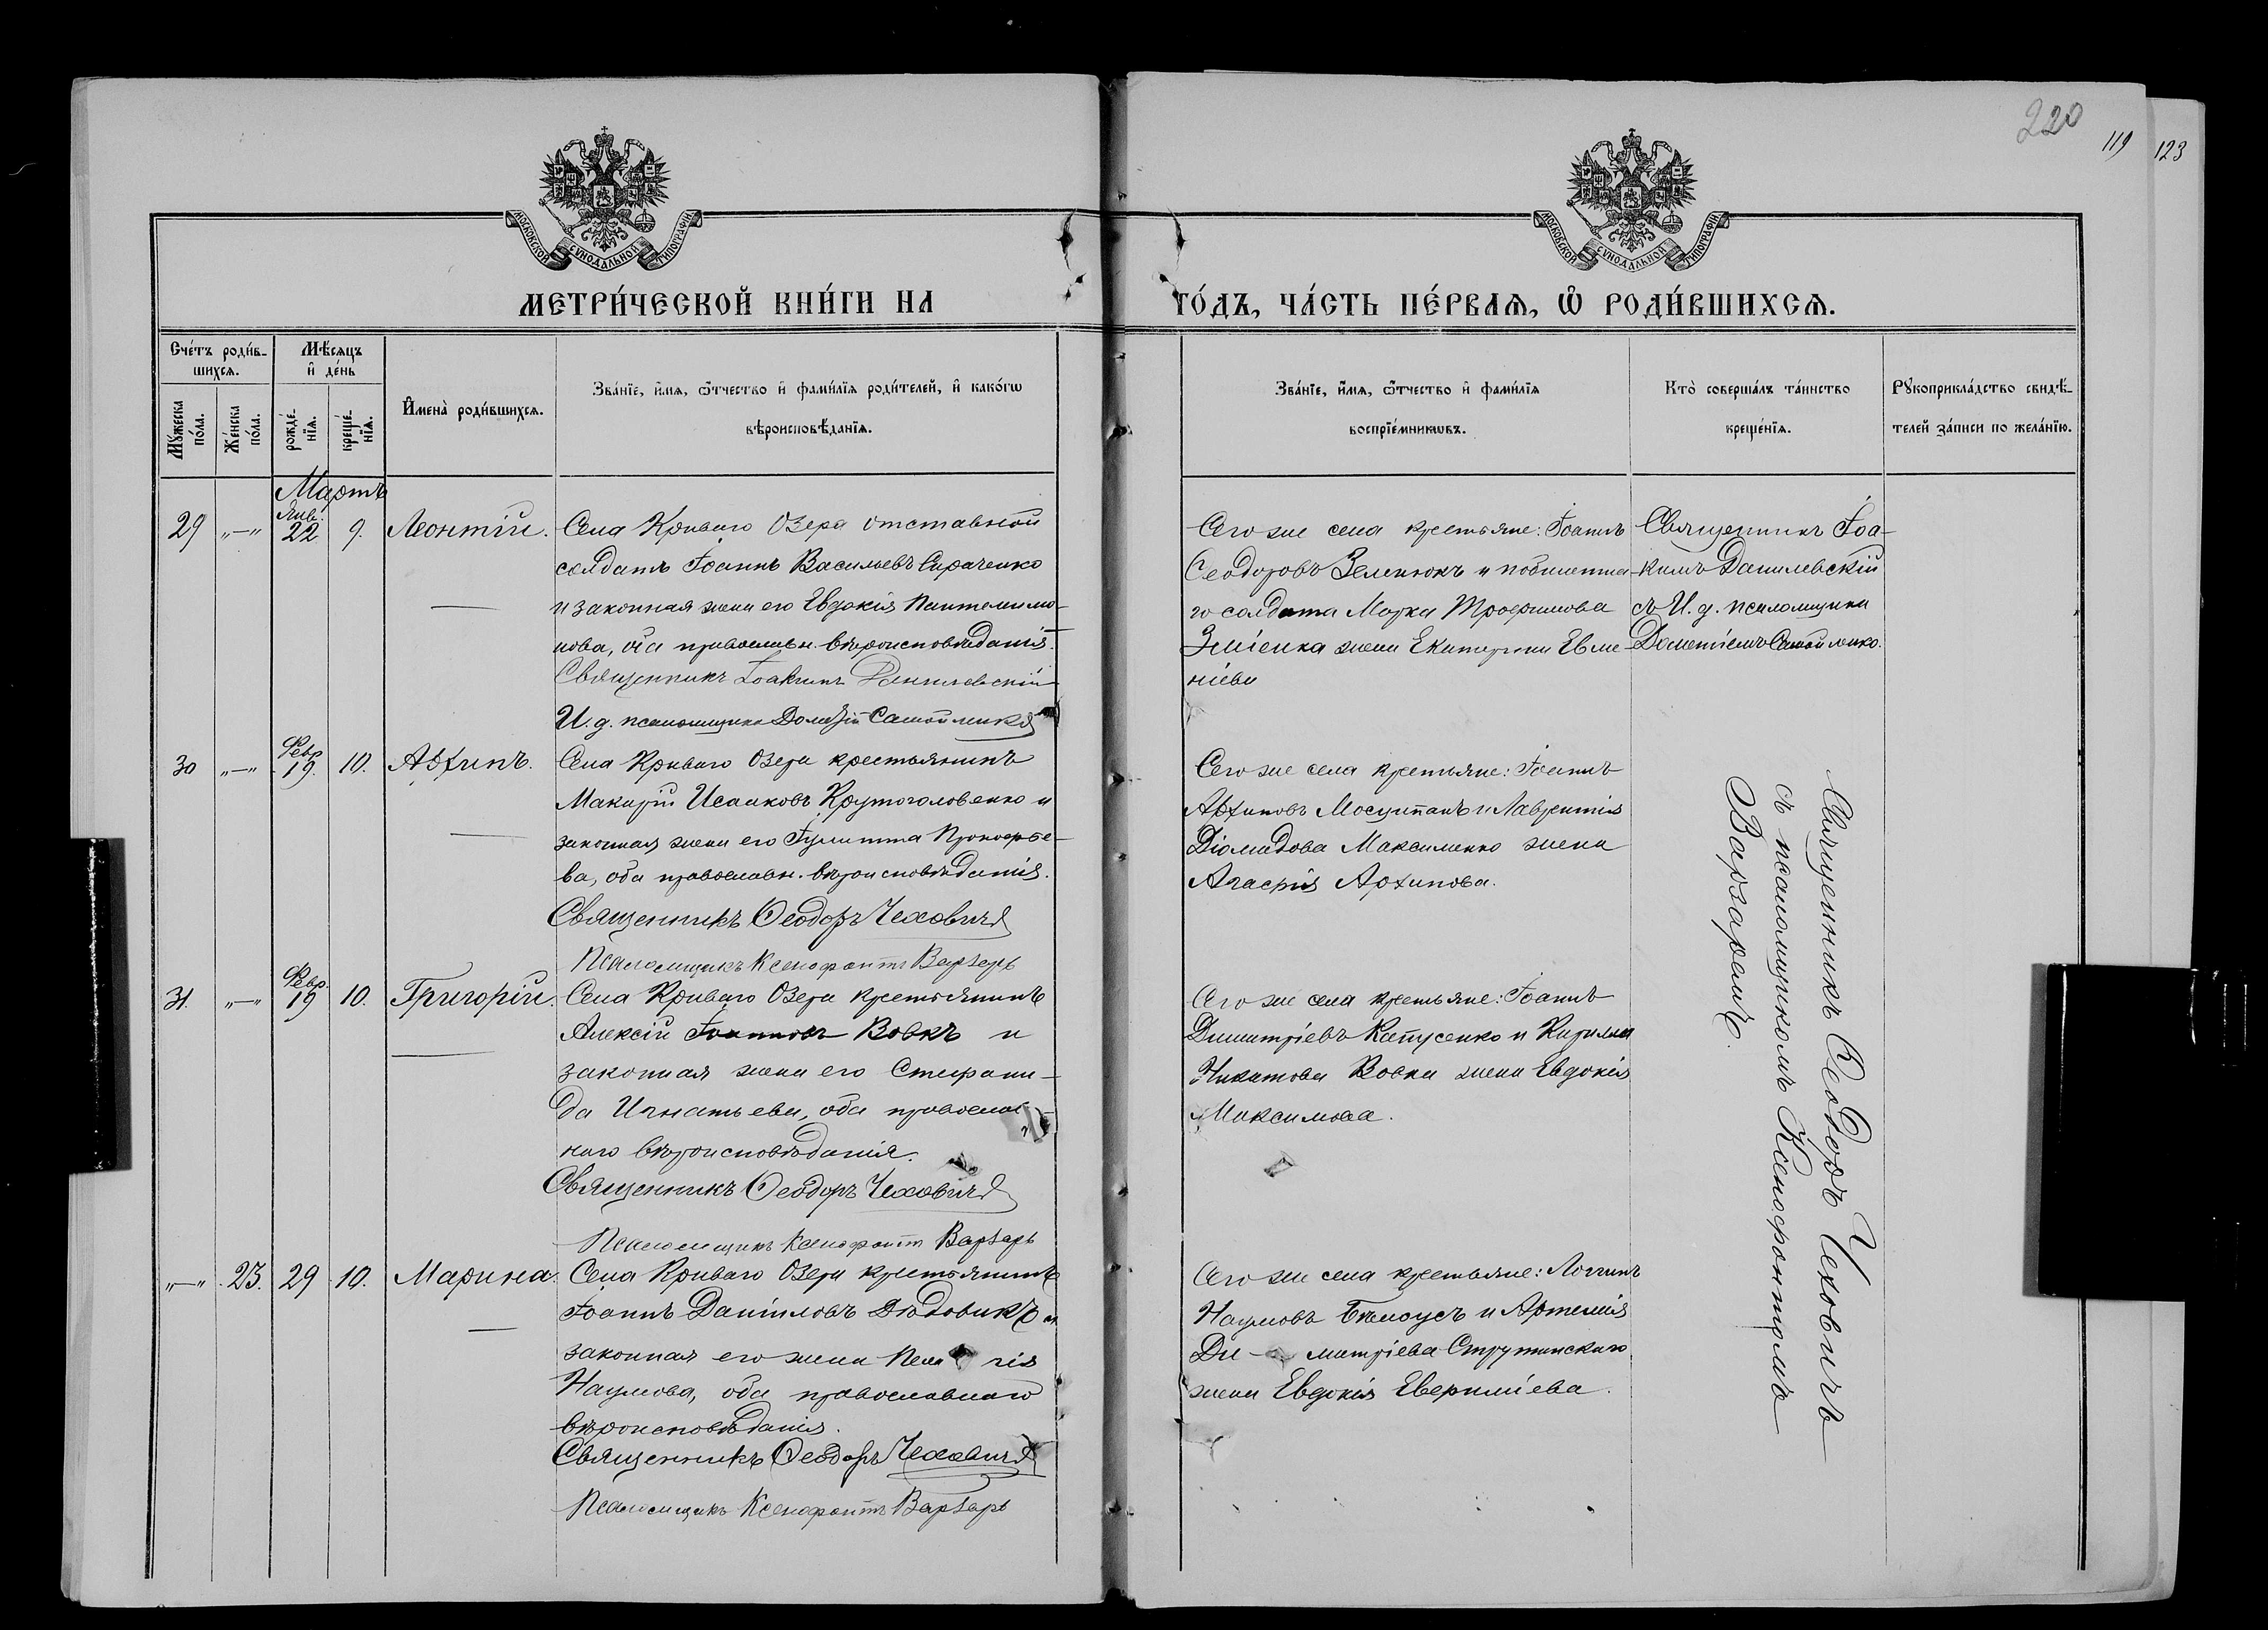 220
119
123
МОСКОВСКОЙ СѴНОДАЛЬНОЙ ТИПОГРАФІИ
МОСКОВСКОЙ СѴНОДАЛЬНОЙ ТИПОГРАФІИ
МЕТРИ́ЧЕСКОЙ КНИ́ГИ НА
ГО́ДЪ, ЧА́СТЬ ПЕ́РВАѦ, Ѡ҆ РОДИ́ВШИХСѦ.
Сче́тъ роди́в-
шихсѧ.
Мѣ́сѧцъ
и҆ де́нь
Мꙋ́жеска
по́ла.
Же́нска
по́ла.
рожде́-
нїѧ.
креще́-
нїѧ.
И҆мена̀ роди́вшихсѧ.
Зва́нїе, и҆́мѧ, ѻ҆́тчество и҆ фами́лїѧ роди́телей, и҆ како́гѡ
вѣроисповѣ́данїѧ.
Зва́нїе, и҆́мѧ, ѻ҆́тчество и҆ фами́лїѧ
воспрїе́мникѡвъ.
Кто̀ соверша́лъ та́инство
креще́нїѧ.
Рꙋкоприкла́дство свидѣ́-
телей за́писи по жела́нїю.
Мартъ
29 „—„ Янв. 22 9. Леонтій.
Села Криваго Озера отставной
солдатъ Іоаннъ Васильевъ Сираченко
и законная жена его Евдокія Пантелимо-
нова, оба православн. вѣроисповѣданія.
Священникъ Іоакимъ Данилевскій
И. д. псаломщика Дометій Самойленко
Сего же села крестьяне: Іоаннъ
Ѳеодоровъ Зеленюкъ и
го солдата Марка Трофимова
Зміенка жена Екатерина Евме-
ніева
Священникъ Іоа-
кимъ Данилевскій
съ И. д. псаломщика
Дометіемъ Самойленко.
30 „—„ Февр. 19. 10. Архипъ.
Села Криваго Озера крестьянинъ
Макарій Исааковъ Крутоголовенко и
законная жена его Іулитта Прокофье-
ва, оба православн. вѣроисповѣданія.
Священникъ Ѳеодоръ Чеховичъ
Псаломщикъ Ксенофонтъ Варзарь
Сего же села крестьяне: Іоаннъ
Архиповъ и Лаврентія
Діомидова Максименко жена
Агафія Архипова.
Священникъ Ѳеодоръ Чеховичъ
съ псаломщикомъ Ксенофонтомъ
Варзаремъ.
31. „—„ Февр. 19 10. Григорій.
Села Криваго Озера крестьянинъ
Алексій Іоанновъ Вовкъ и
законная жена его Стефани-
да Игнатьева, оба православ-
наго вѣроисповѣданія.
Священникъ Ѳеодоръ Чеховичъ
Псаломщикъ Ксенофонтъ Варзарь
Сего же села крестьяне: Іоаннъ
Димитріевъ Капусенко и Кирилла
Никитова Вовка жена Евдокія
Максимова.
„—„ 23. 29 10. Марина.
Села Криваго Озера крестьянинъ
Іоаннъ Даніиловъ Дюдовикъ и
законная его жена Пела гія
Наумова, оба православнаго
вѣроисповѣданія.
Священникъ Ѳеодоръ Чеховичъ
Псаломщикъ Ксенофонтъ Варзарь
Сего же села крестьяне: Логгинъ
Наумовъ Бѣлоусъ и Артемія
Ди- митріева Струтинскаго
жена Евдокія Еверипіева.